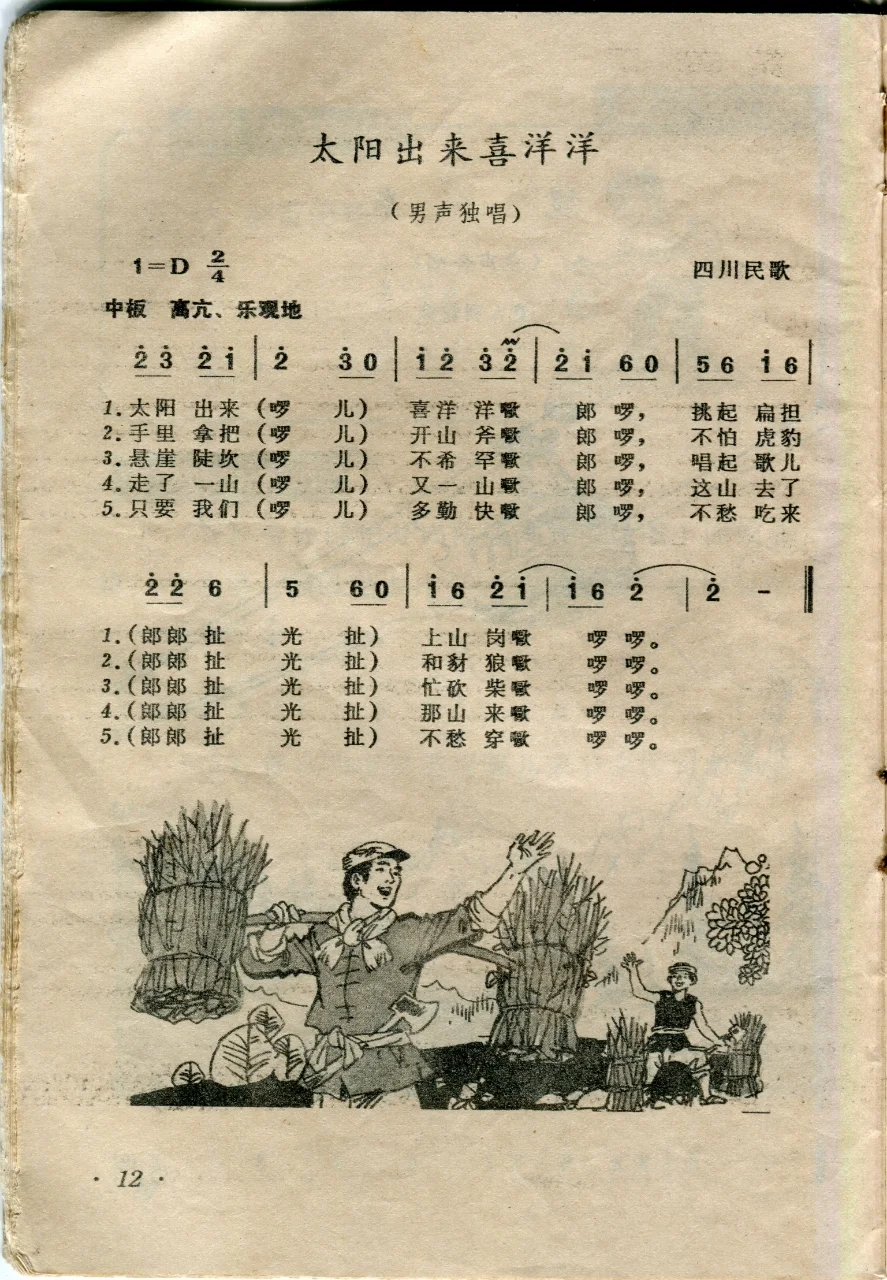 太阳出来喜洋洋
（男声独唱）
1=D 2/4
四川民歌
中板 高亢、乐观地
2̇3̇ 2̇1̇ | 2̇ 3̇0 | 1̇2̇ 3̇2̇ | 2̇1̇ 60 | 56 1̇6 |
1.太阳 出来（啰 儿） 喜洋 洋噉 郎啰， 挑起 扁担
2.手里 拿把（啰 儿） 开山 斧噉 郎啰， 不怕 虎豹
3.悬崖 陡坎（啰 儿） 不希 罕噉 郎啰， 唱起 歌儿
4.走了 一山（啰 儿） 又一 山噉 郎啰， 这山 去了
5.只要 我们（啰 儿） 多勤 快噉 郎啰， 不愁 吃来
2̇2̇ 6 | 5 60 | 1̇6 2̇1̇ | 1̇6 2̇ | 2̇ - ‖
1.（郎郎 扯 光 扯） 上山 岗噉 啰 啰。
2.（郎郎 扯 光 扯） 和豺 狼噉 啰 啰。
3.（郎郎 扯 光 扯） 忙砍 柴噉 啰 啰。
4.（郎郎 扯 光 扯） 那山 来噉 啰 啰。
5.（郎郎 扯 光 扯） 不愁 穿噉 啰 啰。
· 12 ·